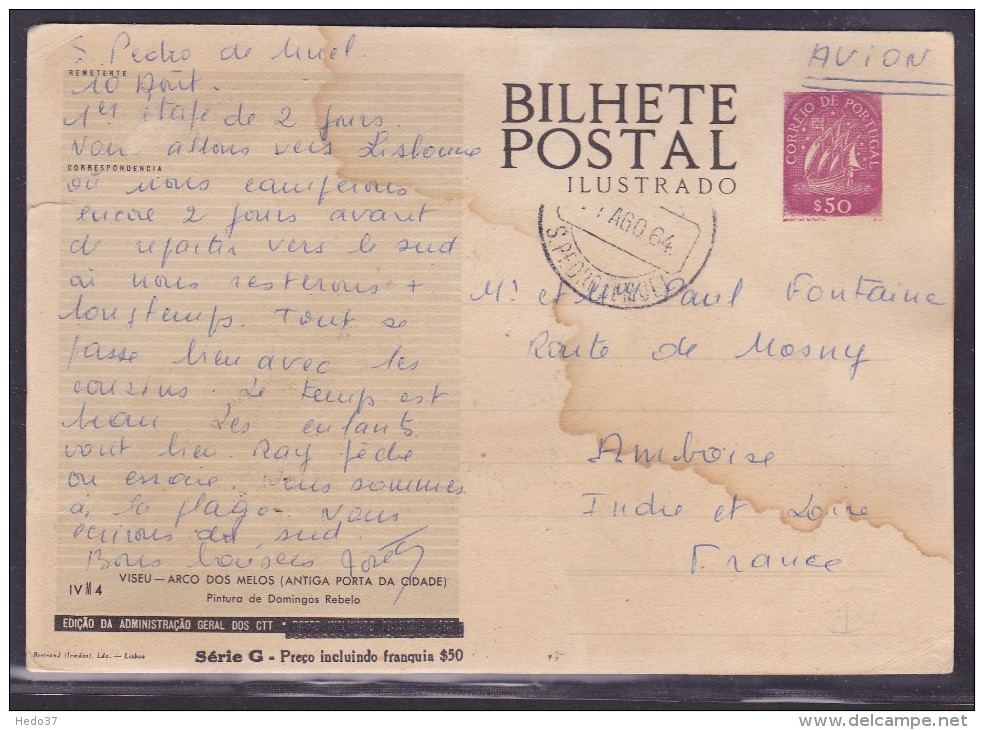 S. Pedro de Muel.
REMETENTE
10 Août.
1er étape de 2 jours.
Nous allons vers Lisbonne
CORRESPONDENCIA
où nous camperons
encore 2 jours avant
de repartir vers le sud
où nous resterons +
longtemps. Tout se
passe bien avec les
cousins. Le temps est
beau. Les enfants
vont bien. Ray pêche
ou essaie. Nous sommes
à la plage. Nous
écrirons du sud.
Bons baisers
VISEU — ARCO DOS MELOS (ANTIGA PORTA DA CIDADE)
IV M 4
Pintura de Domingos Rebelo
EDIÇÃO DA ADMINISTRAÇÃO GERAL DOS CTT
Bertrand (Irmãos), Lda. — Lisboa
Série G - Preço incluindo franquia $50
AVION
BILHETE
POSTAL
ILUSTRADO
CORREIO DE PORTUGAL
$50
AGO.64
Mr et Mme Paul Fontaine
Route de Mosny
Amboise
Indre et Loire
France
Hedo37
www.delcampe.net